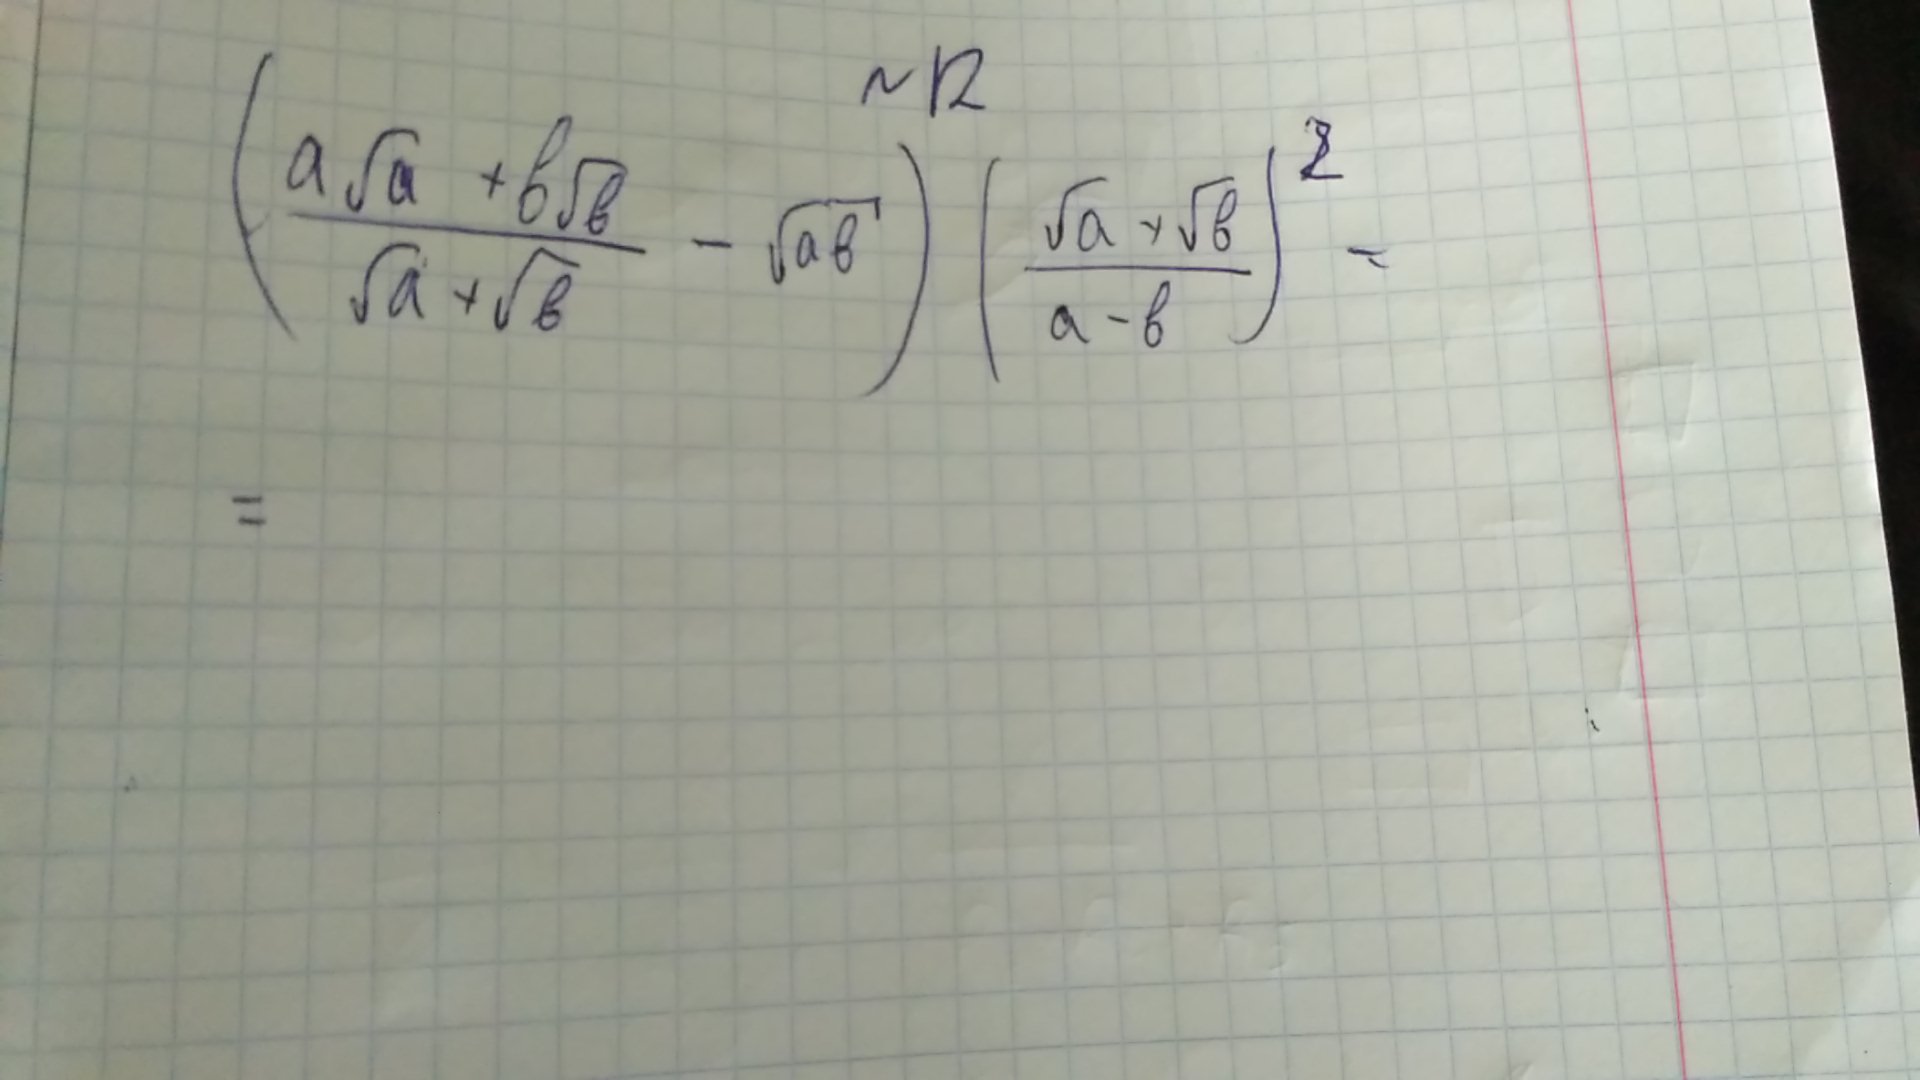 ~ 12
(a√a + b√b / √a + √b - √ab) (√a + √b / a - b)² =
=